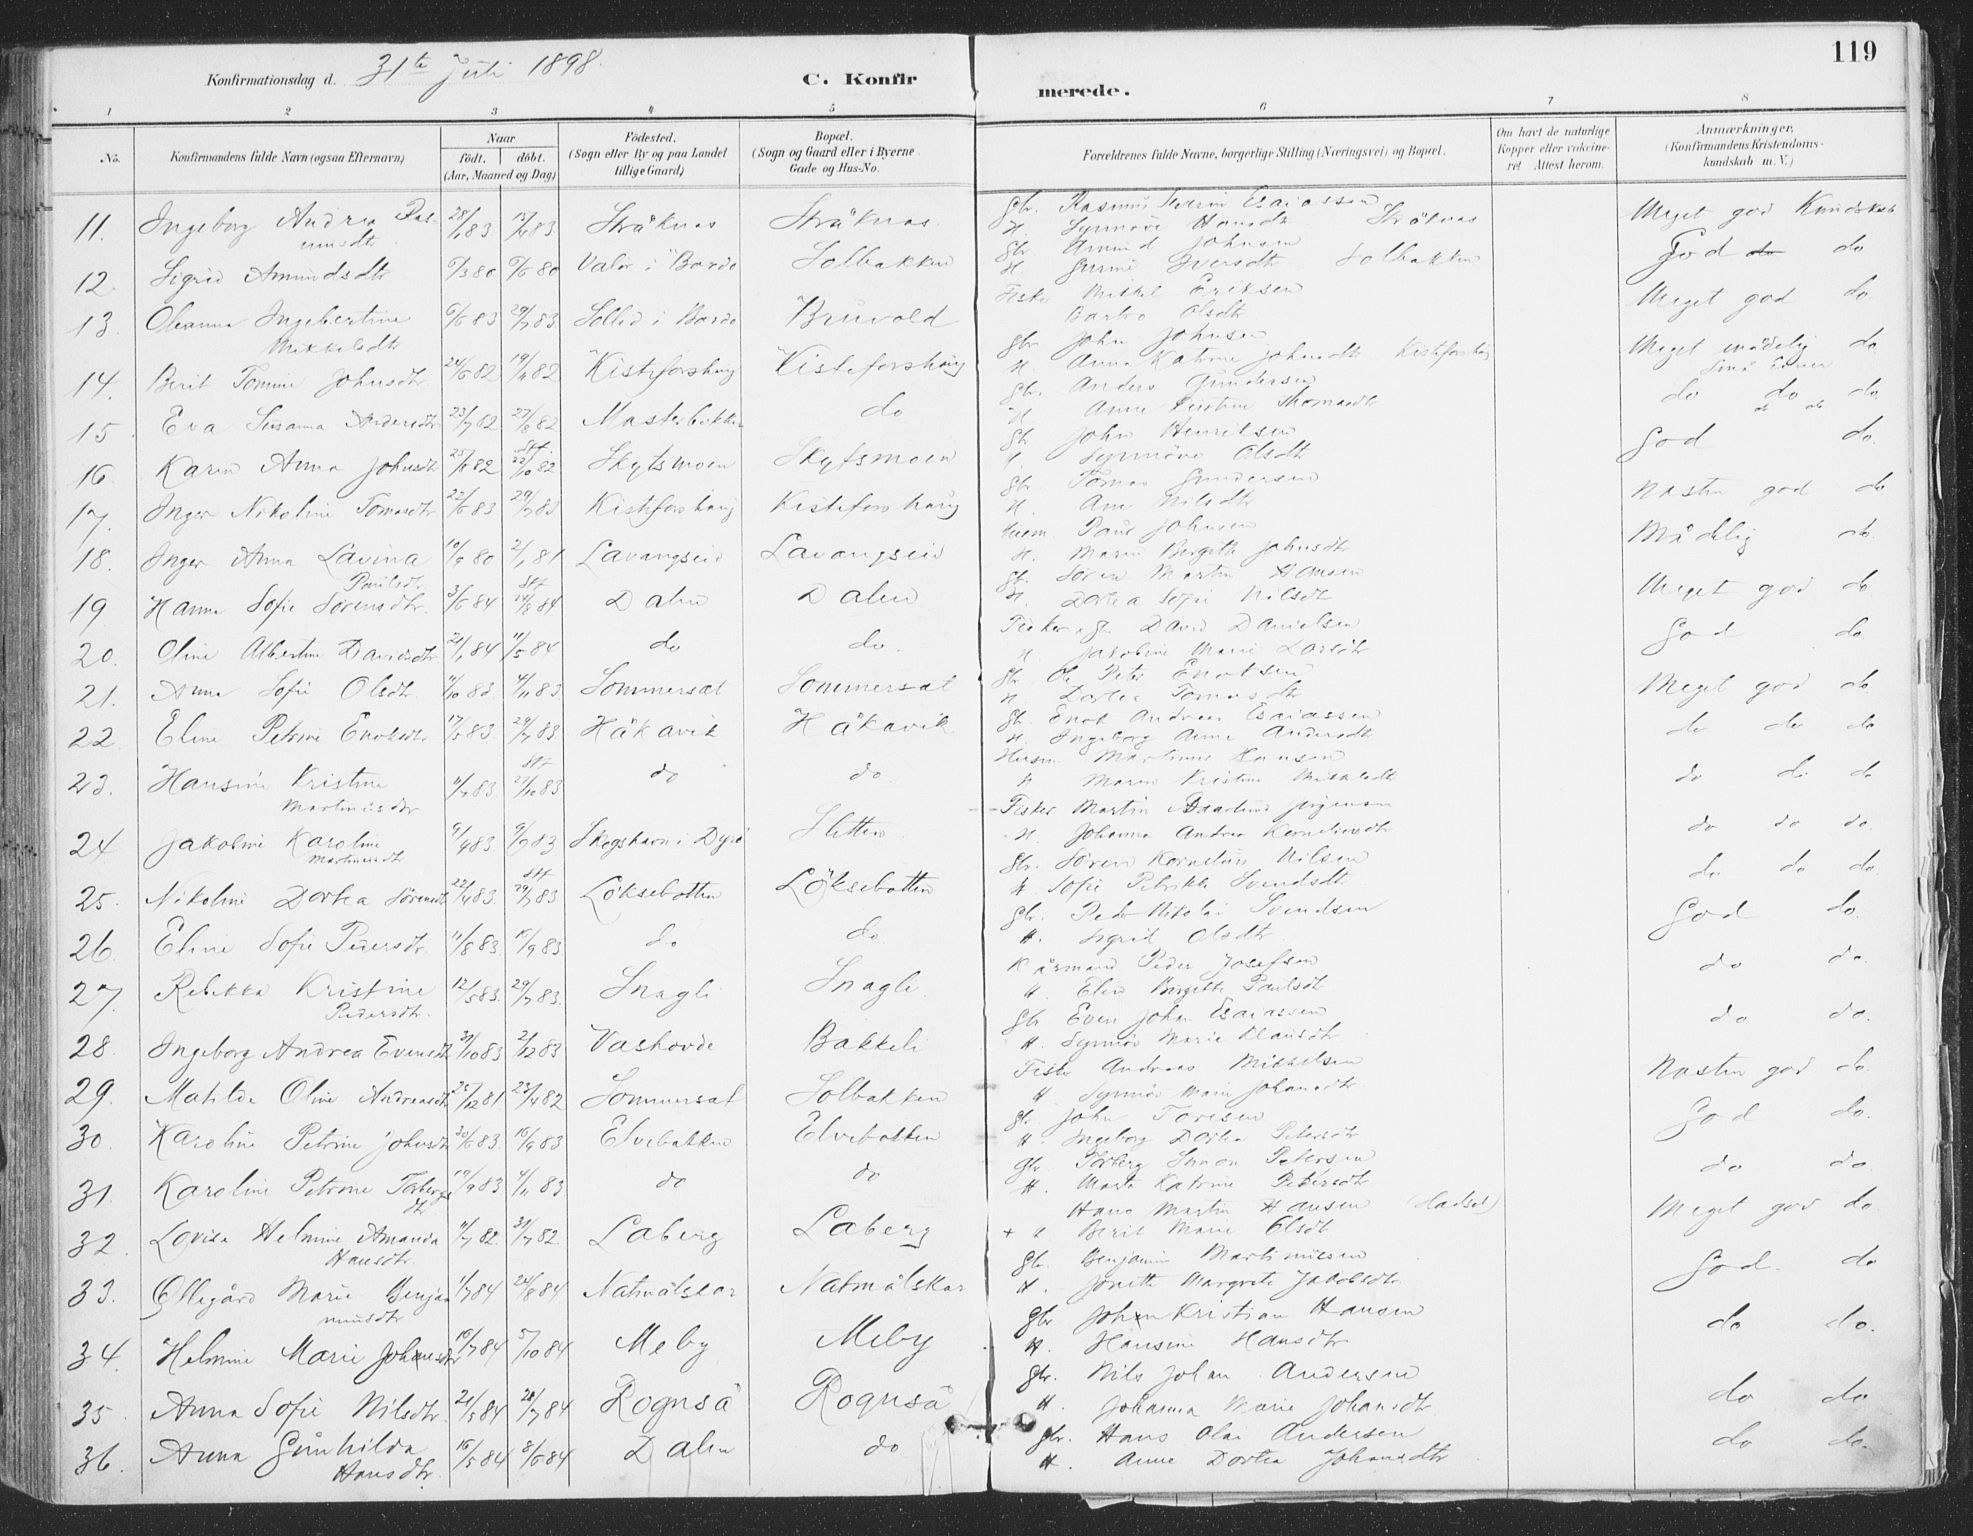 119
Konfirmationsdag d. 31te Juli 1898.
C. Konfirmerede.
1 2 3 4 5 6 7 8
No. Konfirmandens fulde Navn (ogsaa Efternavn) Naar født. døbt. (Aar, Maaned og Dag) Fødested. (Sogn eller By og paa Landet tillige Gaard) Bopæl. (Sogn og Gaard eller i Byerne Gade og Hus-No. Forældrenes fulde Navne, borgerlige Stilling (Næringsvei) og Bopæl. Om havt de naturlige Kopper eller vakcineret Attest herom. Anmærkninger, (Konfirmandens Kristendomskundskab m. V.)
11. Ingeborg Andrea Rasmusdtr 83 83 Stråknas Stråknas. Gbr. Rasmus Severin Esaiassen Meget god Kundskab
H. Synnøve Hansdtr Stråknas
12. Sigrid Amundsdtr 80 80 i Bardo Solbakken Gbr Amund Johnsen God do
H. Gunni Iversdtr Solbakken
13. Oleanna Ingebertine Mikkelsdtr 6/6 83 29/7 83 i Bardo Bruvold Fisker Mikkel Eriksen Meget god do
Barbro Olsdtr
14. Berit Tomine Johnsdtr 24/6 82 82 Kisteforshaug Kisteforshaug Gbr John Johnsen Meget mådelig do
H. Anna Katrine Johnsdtr Kisteforshaug
15. Eva Susanna Andersdtr 23/7 82 27/8 82 Masterbakken do Gbr. Anders Gundersen do do do
H Anne Kristine Thomasdtr
16. Karen Anna Johnsdtr 82 22/10 82 Skytsmoen Skytsmoen Gbr John Henriksen God do.
Synnøve Olsdtr
17. Inger Nikoline Tomasdtr 22/6 83 29/7 83 Kisteforshaug Kisteforshaug Gbr. Tomas Gundersen Nasten god do
H. Ane Nilsdtr
18. Inger Anna Lavina Paulsdtr 10/9 80 2/1 81 Lavangseid Lavangseid Husm. Paul Johnsen Mådelig do.
H. Maren Birgitte Johnsdtr
19 Hanna Sofie Sørensdtr. 3/6 84 14/8 84 Dalen Dalen Gbr. Søren Martin Hansen Meget god do
H. Dortea Sofie Nilsdtr
20. Oline Albertine Davidsdtr 84 84 do do. Fisker, gbr David Danielsen God do
H Jakobine Marie Larsdtr
21. Anna Sofie Olsdtr. 83 4/11 83 Sommersat Sommersat Gbr. Ole Peter Enoksen Meget god do
H Dortea Tomasdtr
22. Eline Petrine Enoksdtr 17/5 83 29/7 83 Håkavik Håkavik Gbr. Enok Andreas Esaiassen do do do
H. Ingeborg Anne Andersdtr
23. Hansine Kristine Martinusdtr 83 83 do do. Husm Martinus Hansen do do do
H Maren Kristine Mikkelsdtr
24 Jakobine Karoline 83 83 Skogshavn i Dyrö Sletten Fisker Martin Jørgensen do do do.
H. Johanna Andrea Korneliusdtr
25. Nikoline Dortea Sørensdtr 22/4 83 29/7 83 Löksebotten Löksebotten Gbr. Søren Kornelius Nilsen do do do.
H. Sofie Petrikke Svendsdtr
26. Eline Sofie Pedersdtr. 11/8 83. 83 do do Gbr. Peder Nikolai Svendsen God do.
H. Sigrid Olsdtr
27. Rebekka Kristine Pedersdtr. 12/5 83. 29/7 83. Snagli Snagli Kårmand Peder Josefsen do do.
H Elen Birgitte Paulsdtr
28. Ingeborg Andrea Evensdtr 31/10 83 2/12 83 Vashovde Bakkeli Gbr Even Johan Esaiassen do do.
H. Synnøv Marie Klausdtr
29. Matilde Oline Andreasdtr 81 23/4 82 Sommersat Solbakken Fisker Andreas Mikkelsen Nasten god do
H Synnøv Marie Johansdtr
30. Karoline Petrine Johnsdtr 30/6 83. 16/9 83 Elvebakken Elvebakken Gbr. John Toresen God do.
H. Ingeborg Dortea Petersdtr
31. Karoline Petrine Torbergsdtr 19/9 83 4/11 83 do do Gbr. Torberg Simon Petersen do do.
H. Marta Katrine Petersdtr
32. Lovisa Helmine Amanda Hansdtr 82. 31/7 82 Laberg Laberg Hans Martin Hansen (Hadsel) Meget god do
+ H Berit Marie Olsdtr
33. Ollegård Marie Benjaminsdtr 84 24/8 84 Natmålskar Natmålskar Gbr. Benjamin Martinussen God. do
H. Jonette Margrete Jakobsdtr
34. Helmine Marie Johansdtr 10/7 84 5/10 84 Meby Meby Gbr Johan Kristian Hansen do do.
H. Hansine Hansdtr
35. Anna Sofie Nilsdtr. 21/5 84 84 Rognså Rognså Gbr. Nils Johan Andersen do do
H. Johanna Marie Johansdtr
36. Anna Gunhilda Hansdtr. 16/5 84 8/6 84 Dalen do Gbr. Hans Olai Andersen do do.
H. Anne Dortea Johansdtr